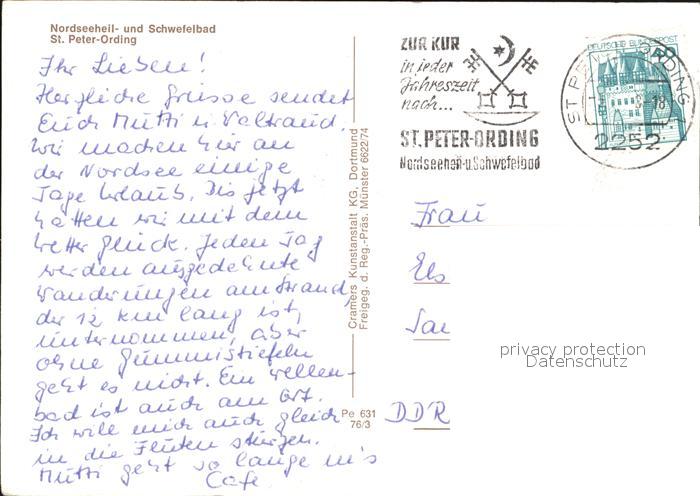 Nordseeheil- und Schwefelbad
St. Peter-Ording
Ihr Lieben!
Herzliche Grüsse sendet
Euch Mutti u. Valtraud.
Wir machen hier an
der Nordsee einige
Tage Urlaub. Bis jetzt
hatten wir mit dem
Wetter Glück. Jeden Tag
werden ausgedehnte
Wanderungen am Strand,
der 12 km lang ist,
unternommen, aber
ohne Gummistiefeln
geht es nicht. Ein Wellen-
bad ist auch am Ort.
Ich will mich auch gleich
in die Fluten stürzen.
Mutti geht so lange in's
Cafe.
Cramers Kunstanstalt KG, Dortmund
Freigeg. d. Reg.-Präs. Münster 6622/74
Pe 631
76/3
ZUR KUR
in jeder
Jahreszeit
nach...
ST. PETER-ORDING
Nordseeheil-u.Schwefelbad
DEUTSCHE BUNDESPOST
ST PETER-ORDING
-18
2252
Frau
Els
DDR
privacy protection
Datenschutz